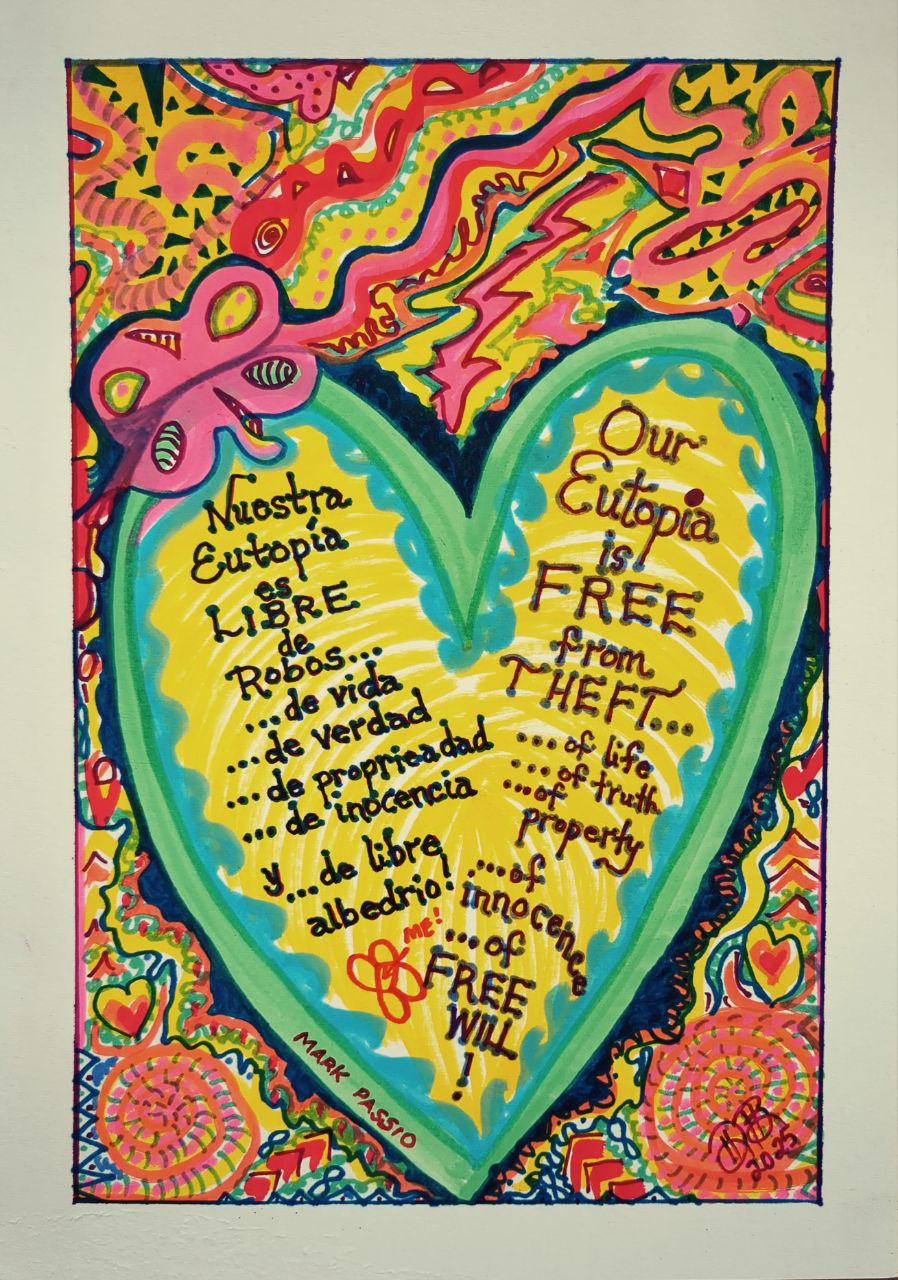 Nuestra
Eutopía
es
LIBRE
de
Robos...
...de vida
...de verdad
...de propriedad
... de inocencia
y...de libre
albedrio!
ME!
MARK PASSIO
Our
Eutopia
is
FREE
from
THEFT...
...of life
...of truth
...of
property
...of
innocence
...of
FREE
WILL
!
2025